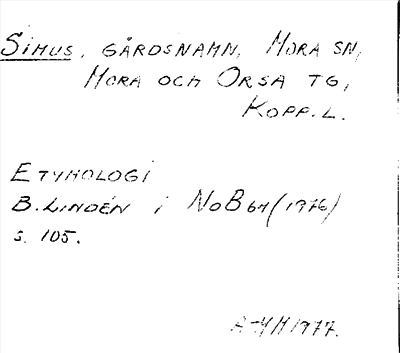 SIMUS, GÅRDSNAMN, MORA SN,
MORA OCH ORSA TG,
KOPP. L.
ETYMOLOGI
B. LINDÉN i NoB 64 (1976)
s. 105.
1977.